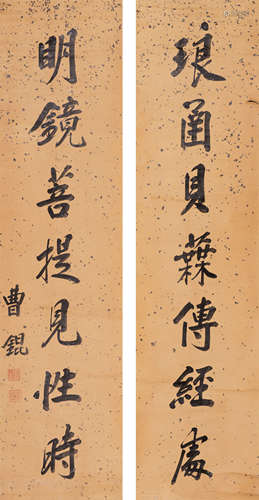 琅函貝葉傳經處
明鏡菩提見性時
曹錕